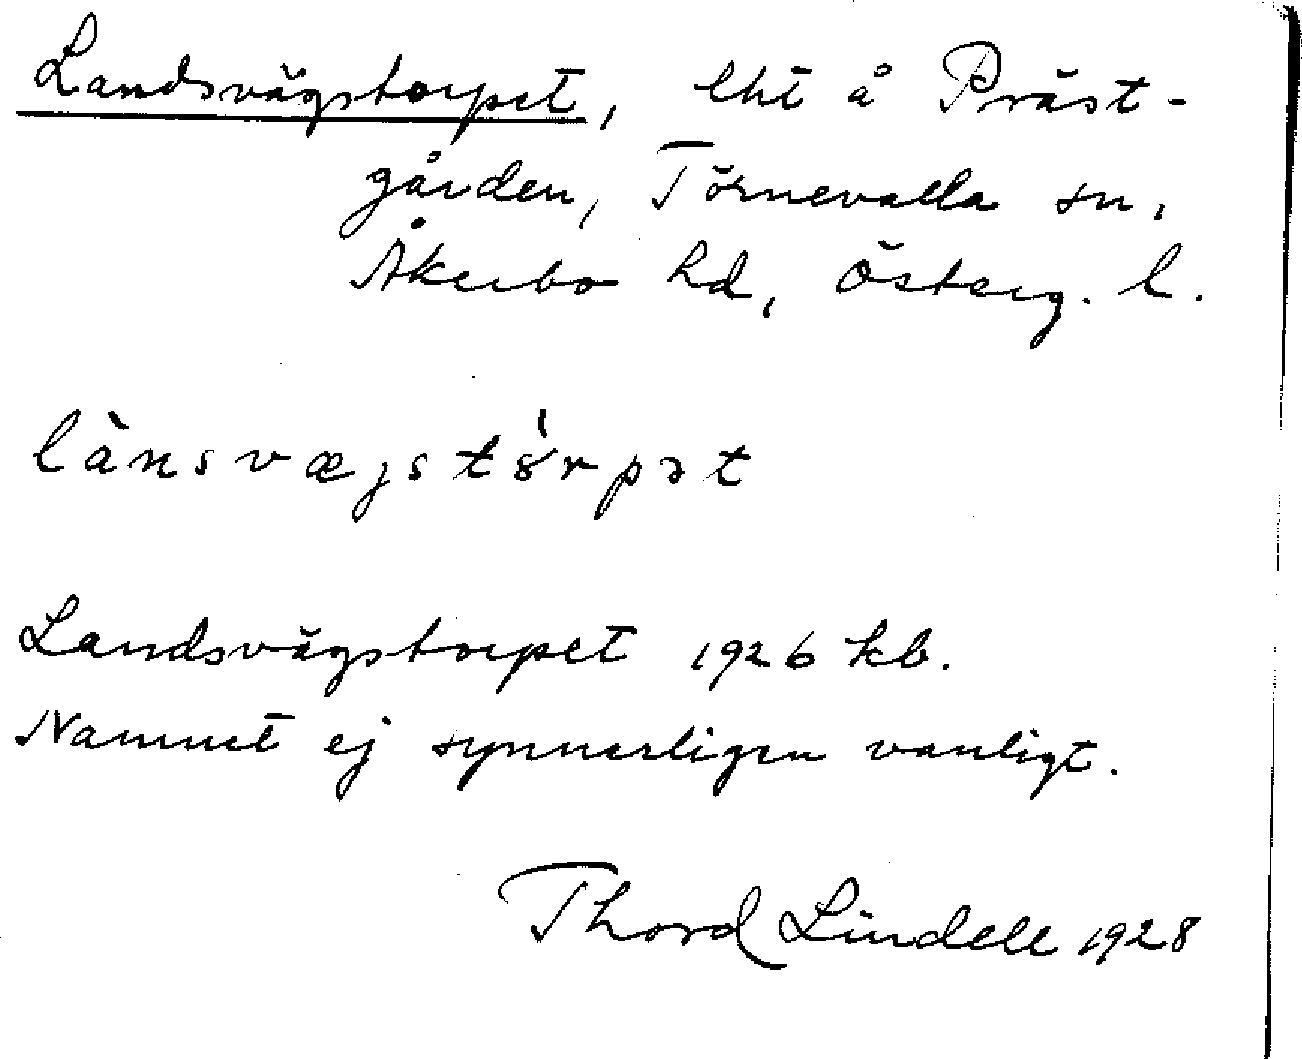 Landsvägstorpet, lht å Präst-
gården, Törnevalla sn,
Åkerbo hd, Österg. l.
lànsvæjstȯ́rpət
Landsvägstorpet 1926 kb.
Namnet ej synnerligen vanligt.
Thord Lindell 1928